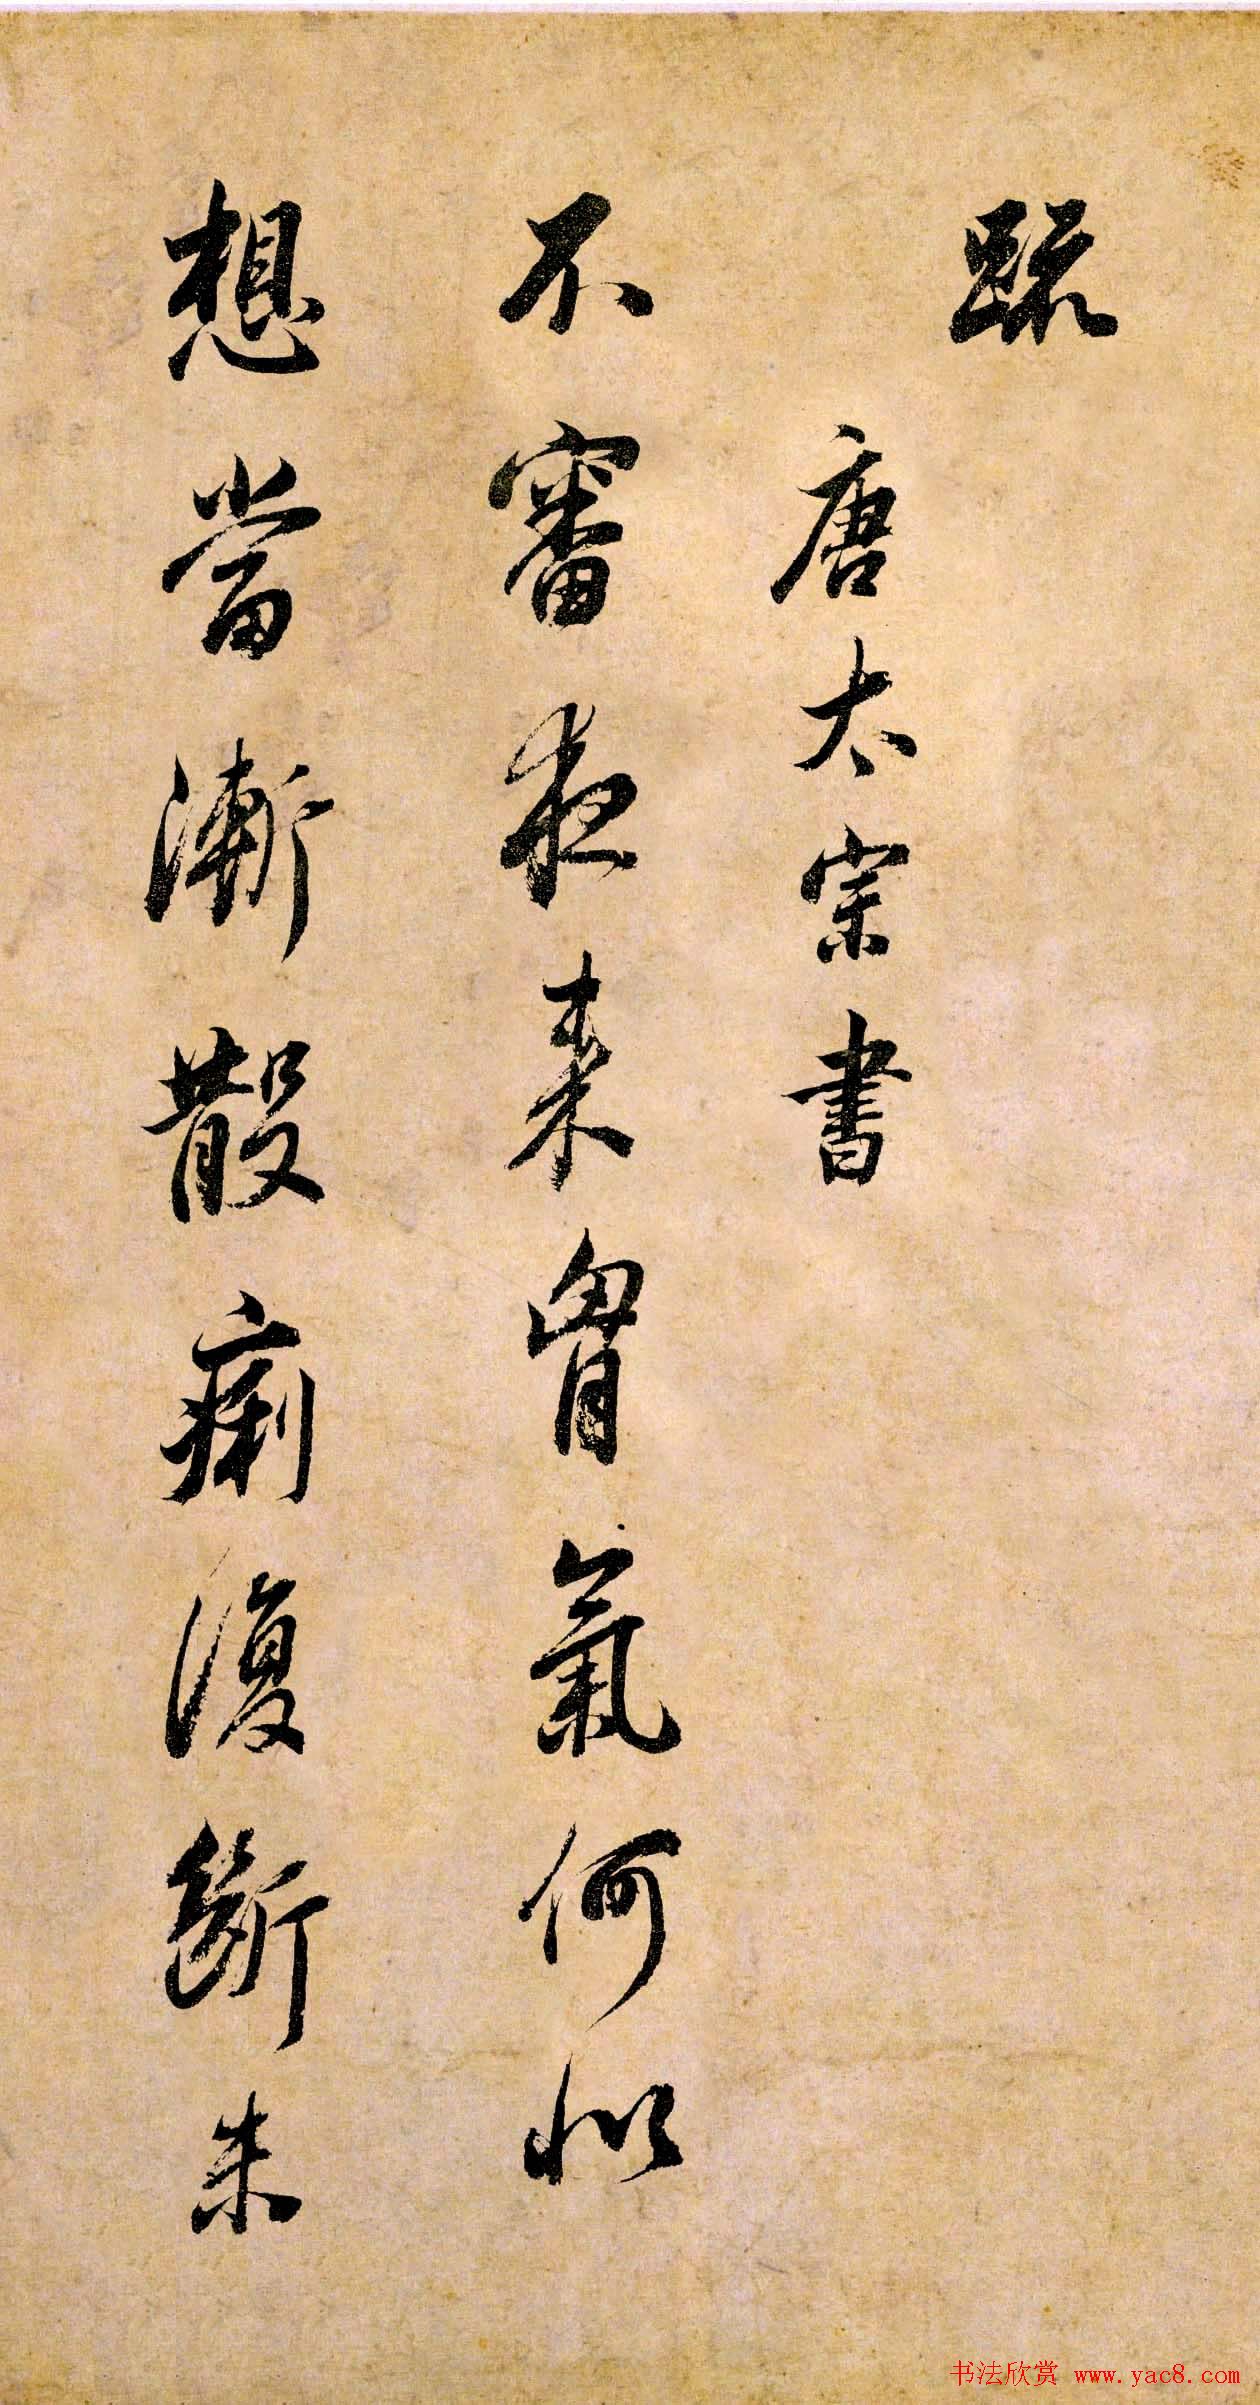 疏
唐太宗書
不審夜來胷氣何似
想當漸散痢復斷未
书法欣赏 www.yac8.com